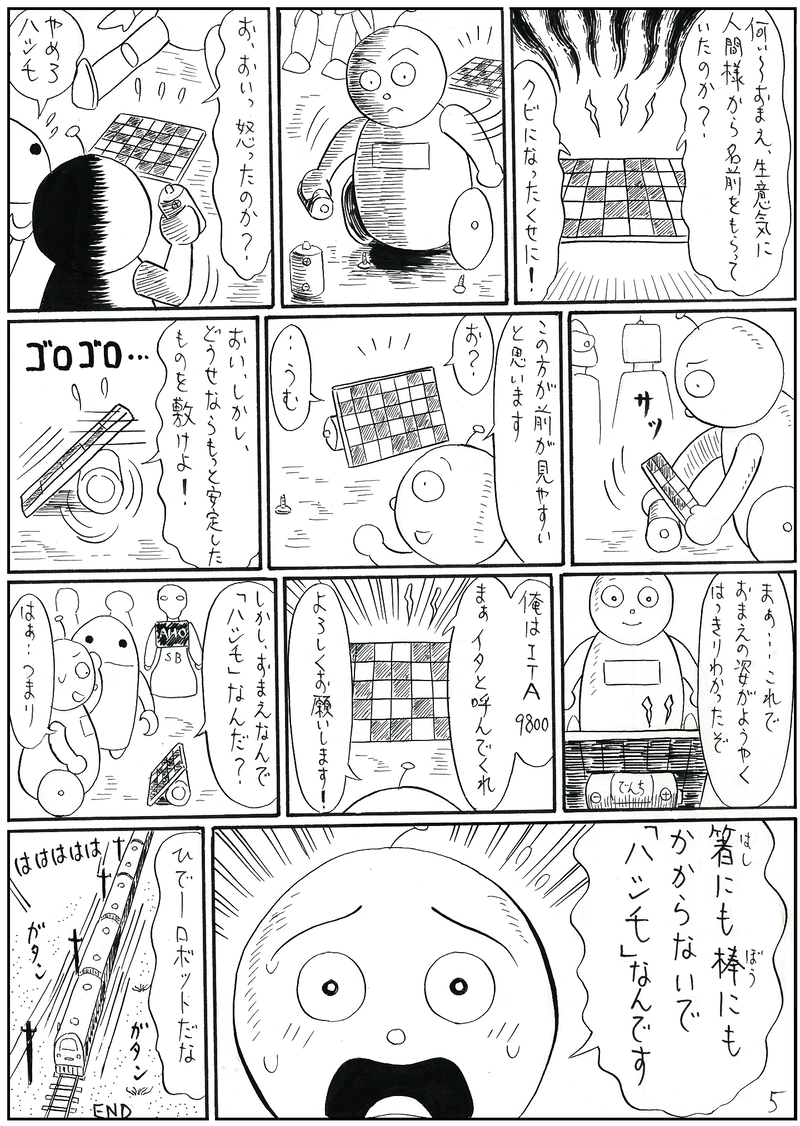 何ぃ〜おまえ、生意気に
人間様から名前をもらって
いたのか？
クビになったくせに！
お、おいっ 怒ったのか？
やめろ
ハシモ
サッ
この方が前が見やすい
と思います
お？
…うむ
おい、しかし、
どうせならもっと安定した
ものを敷けよ！
ゴロゴロ…
まぁ…これで
おまえの姿がようやく
はっきりわかったぞ
でんち
俺はITA
9800
まぁ イタと呼んでくれ
よろしくお願いします！
しかしおまえなんで
「ハシモ」なんだ？
AHO
SB
はぁ…つまり
箸にも棒にも
はし
ぼう
かからないで
「ハシモ」なんです
ひでーロボットだな
はははははは
ガタン
ガタン
END
5